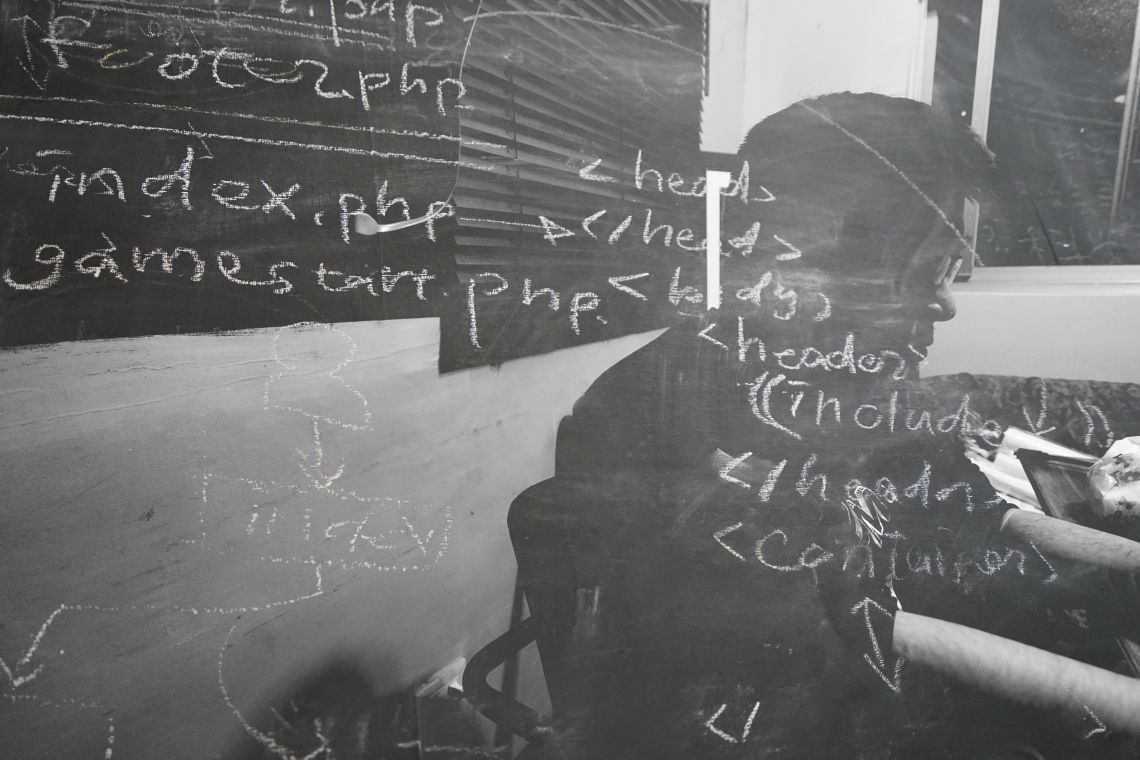 footer.php
index.php
gamestart.php
<head>
</head>
<body>
<header>
((include
</header>
<container>
</